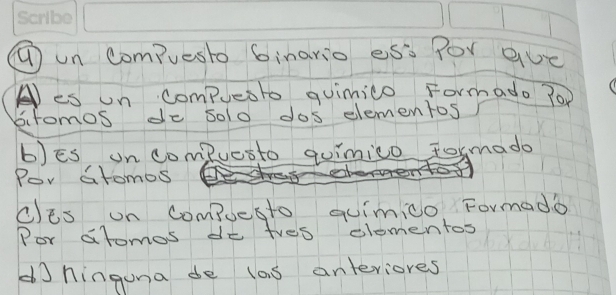 Scribe
④ un comPuesto binario es: Por que
A es un comPuesto quimico Formado Por
átomos de solo dos elementos
b) Es un comPuesto químico formado
Por átomos de tres elementos
c) Es un comPuesto químico Formado
Por átomos de tres elementos
d) ninguna de las anteriores